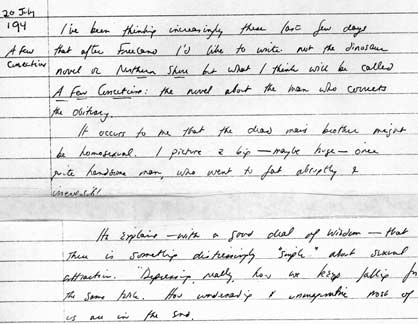 20 July
194
A Few
Corrections
I've been thinking increasingly these last few days
that after Freeland I'd like to write not the dinosaur
novel or Northern Shore but what I think will be called
A Few Corrections: the novel about the man who corrects
the obituary.
It occurs to me that the dead man's brother might
be homosexual. I picture a big — maybe huge — once
quite handsome man, who went to fat abruptly &
He explains — with a good deal of wisdom — that
there is something distressingly "simple" about sexual
attraction. "Depressing, really, how we keep falling for
the same tricks. How &  unimaginative most of
us are in the end.